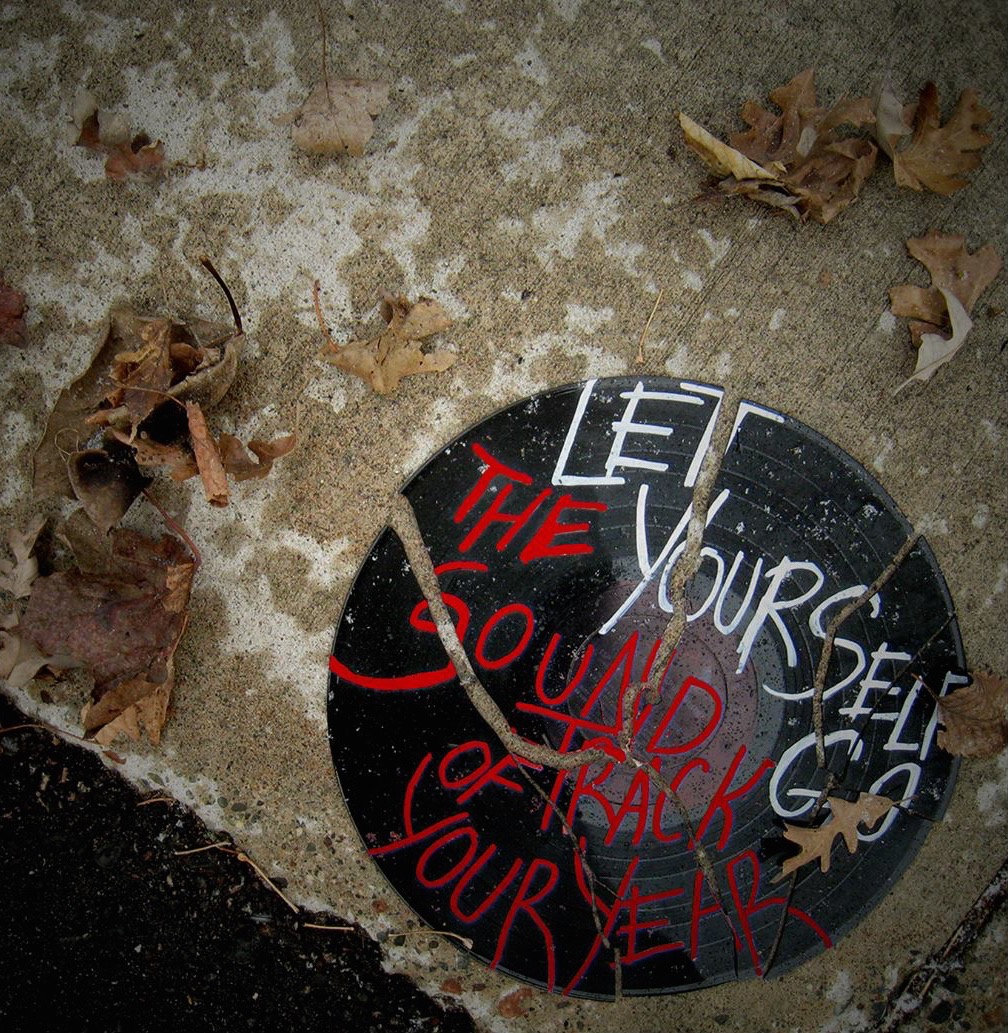 LET
YOURSELF
GO
THE
SOUND
TRACK
OF
YOUR
YEAR